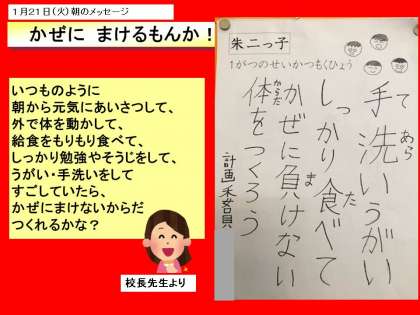 1月21日(火)朝のメッセージ
かぜに まけるもんか!
いつものように
朝から元気にあいさつして、
外で体を動かして、
給食をもりもり食べて、
しっかり勉強やそうじをして、
うがい・手洗いをして
すごしていたら、
かぜにまけないからだ
つくれるかな?
校長先生より
朱二っ子
1がつのせいかつもくひょう
手洗いうがい
てあら
しっかり食べて
た
かぜに負けない
ま
体をつくろう
からだ
計画委員